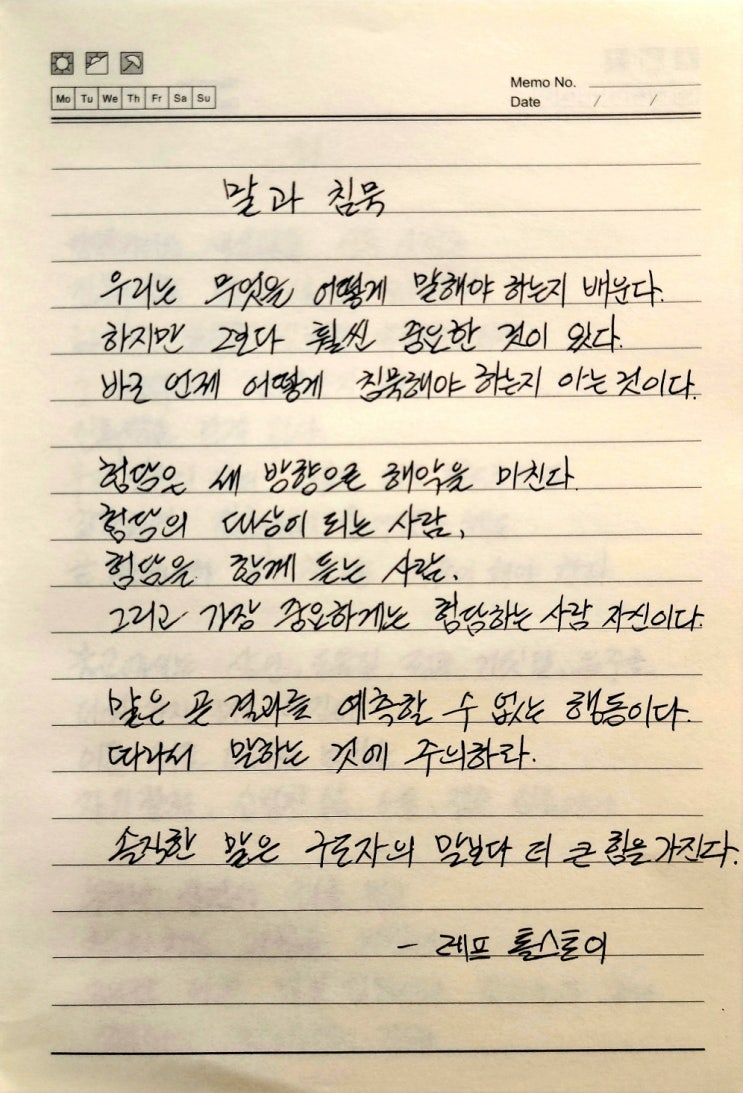 Mo Tu We Th Fr Sa Su
Memo No.
Date / /
말과 침묵
우리는 무엇을 어떻게 말해야 하는지 배운다.
하지만 그보다 훨씬 중요한 것이 있다.
바로 언제 어떻게 침묵해야 하는지 아는 것이다.
험담은 세 방향으로 해악을 미친다.
험담의 대상이 되는 사람,
험담을 함께 듣는 사람,
그리고 가장 중요하게는 험담하는 사람 자신이다.
말은 곧 결과를 예측할 수 없는 행동이다.
따라서 말하는 것에 주의하라.
솔직한 말은 구도자의 말보다 더 큰 힘을 가진다.
- 레프 톨스토이